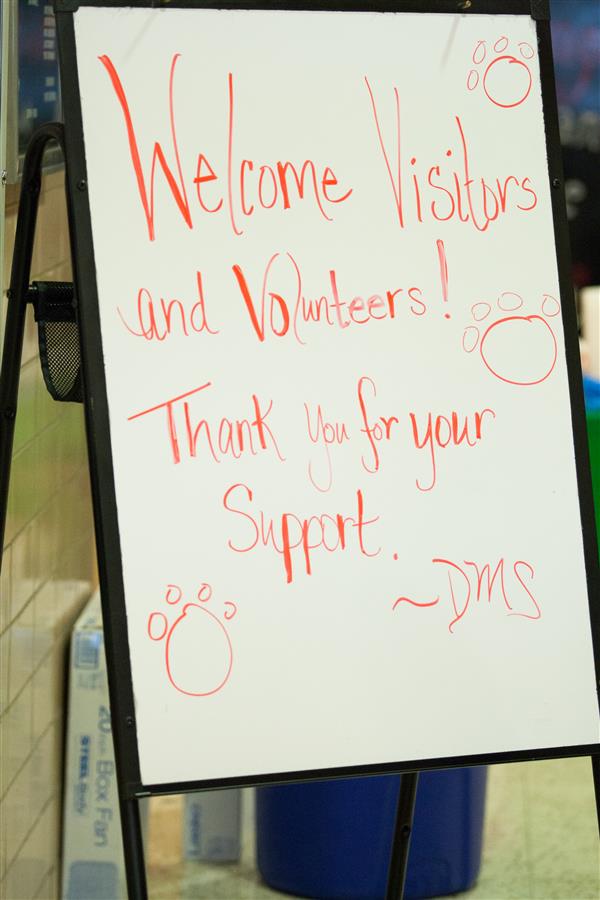 Welcome Visitors
and Volunteers!
Thank you for your
Support.
~DMS
20 Inch Box Fan
STEEL Body